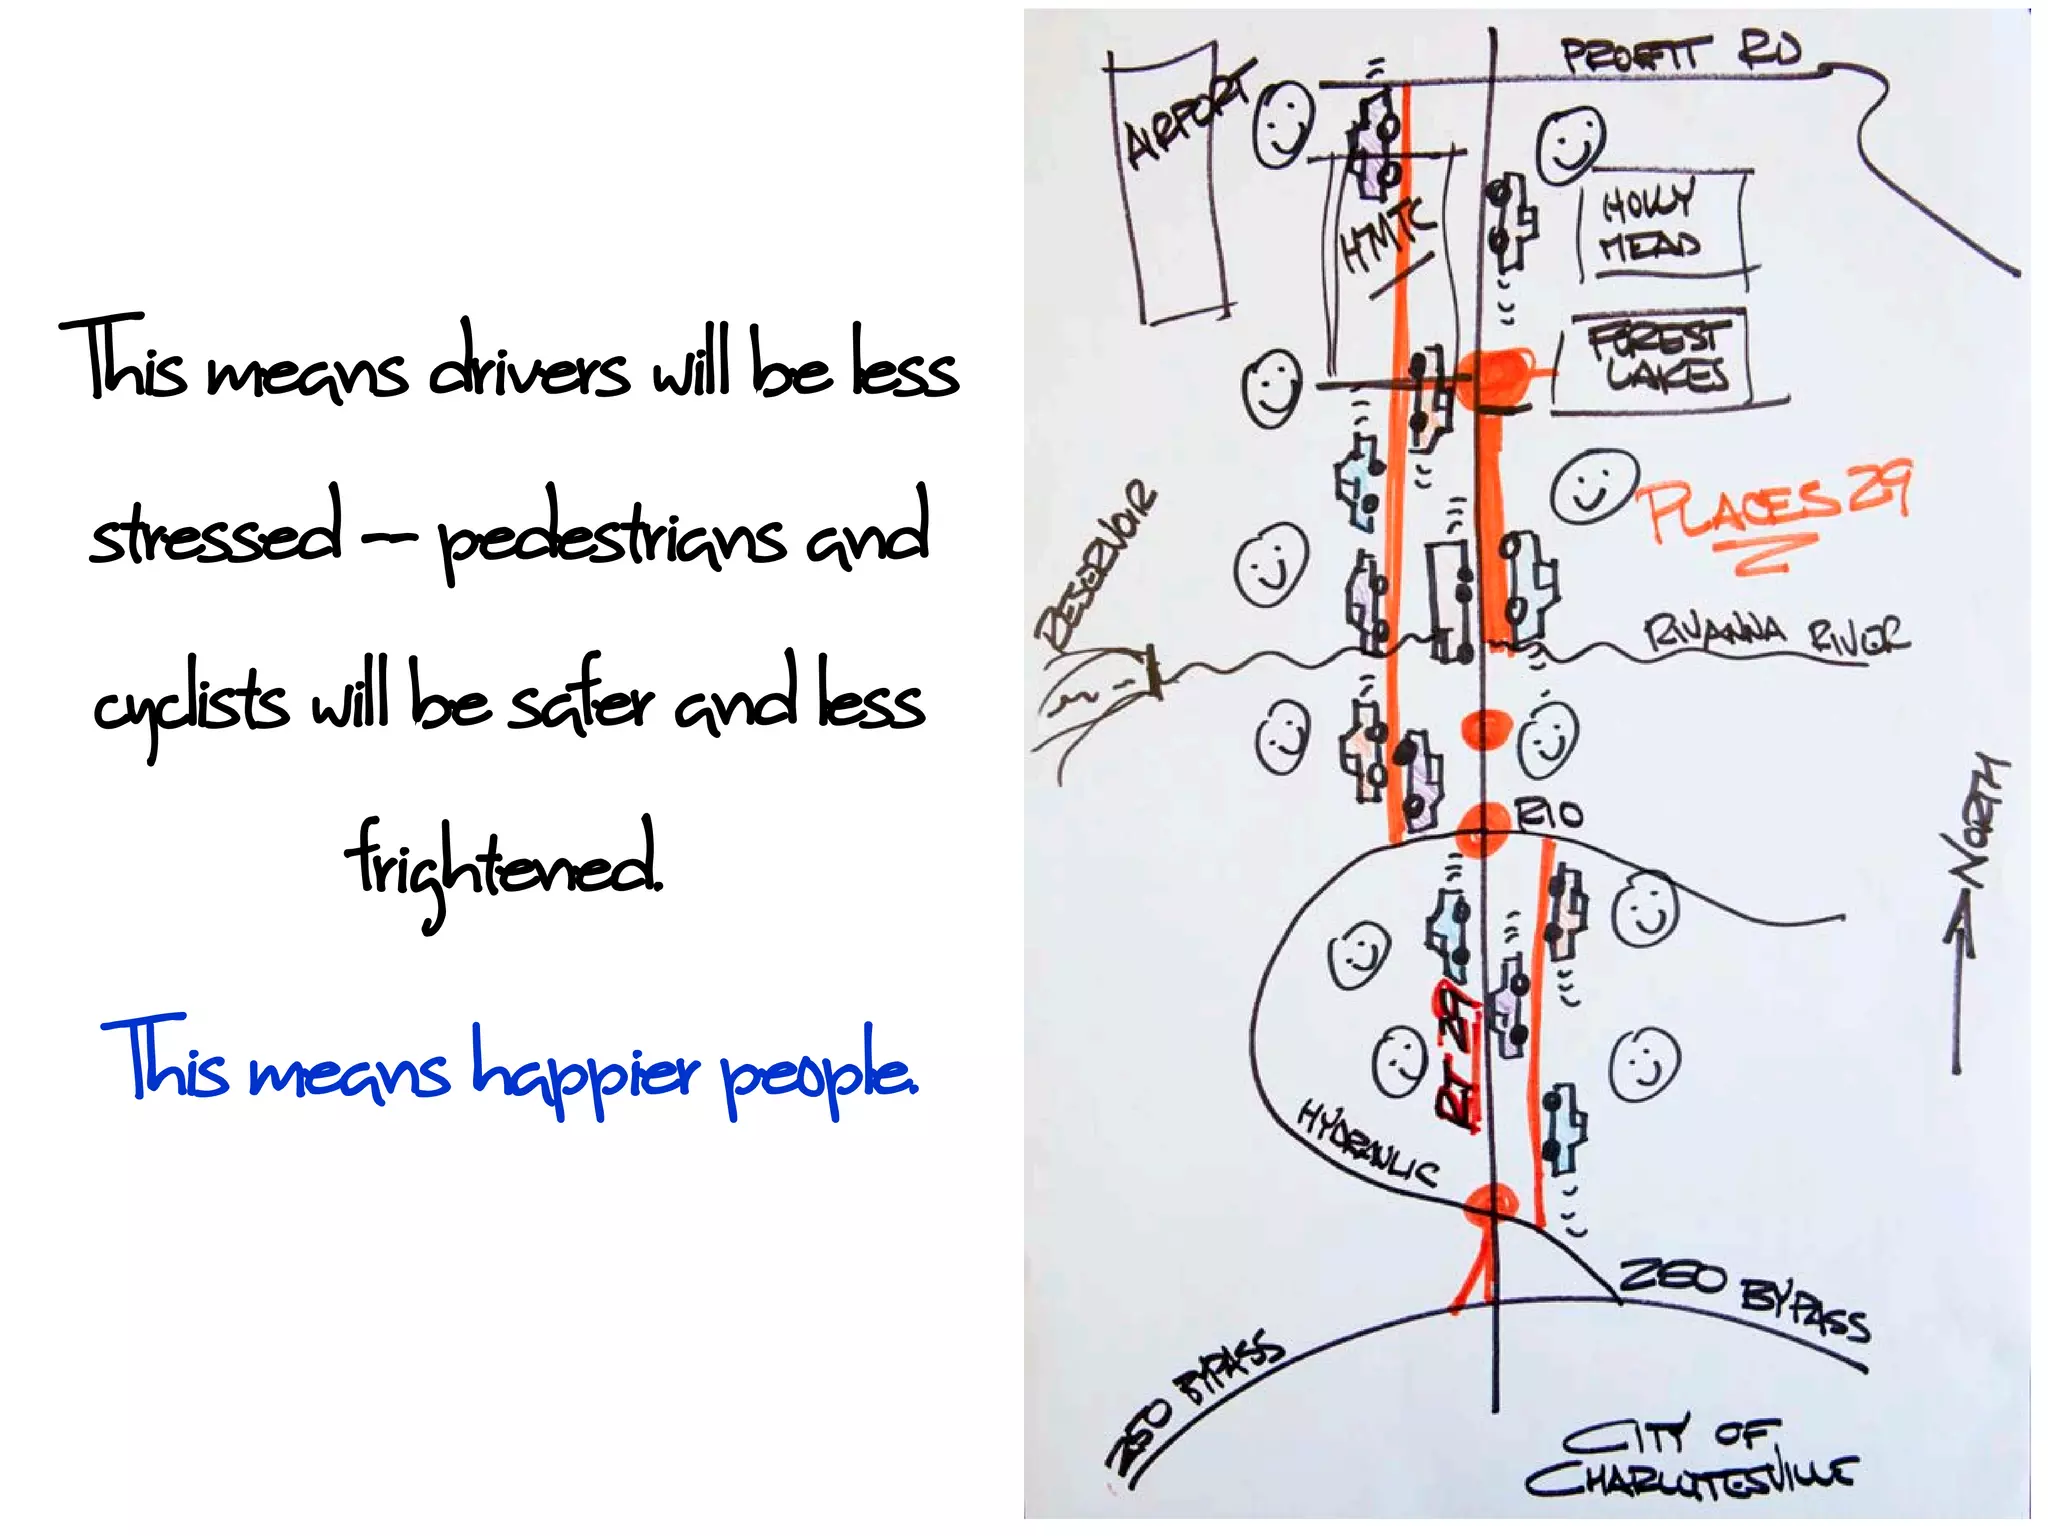 This means drivers will be less
stressed -- pedestrians and
cyclists will be safer and less
frightened.
This means happier people.
PROFFIT RD
AIRPORT
HOLLY
MEAD
HMTC
FOREST
LAKES
PLACES 29
RESERVOIR
RIVANNA RIVER
RIO
NORTH
RT 29
HYDRAULIC
250 BYPASS
250 BYPASS
CITY OF
CHARLOTTESVILLE